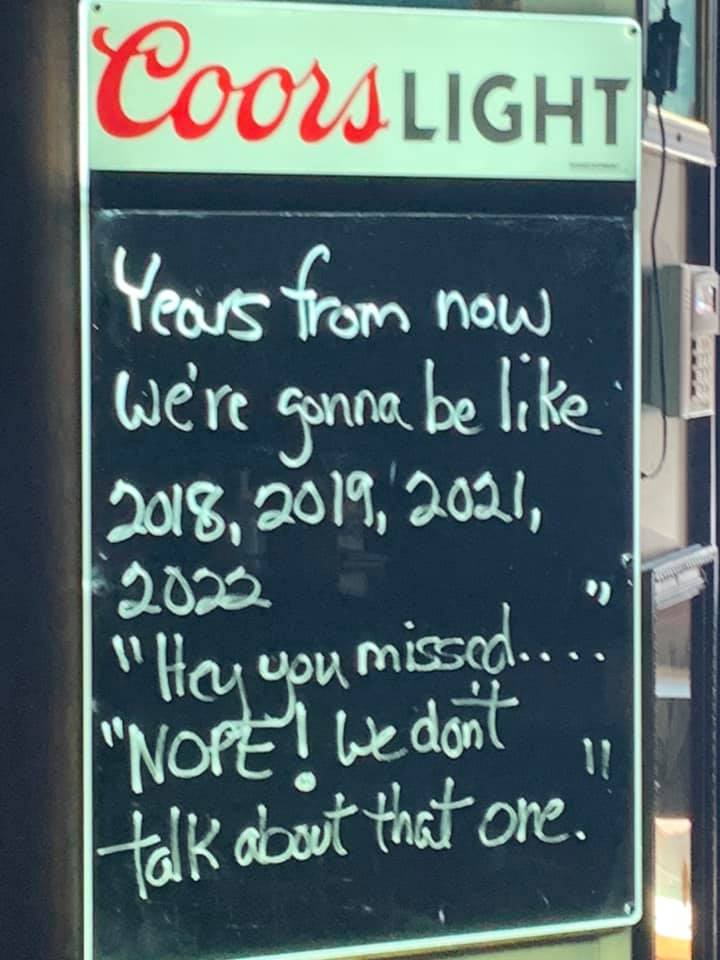 Coors LIGHT
Years from now
we're gonna be like
2018, 2019, 2021,
2022
"Hey you missed...."
"NOPE! We don't
talk about that one."